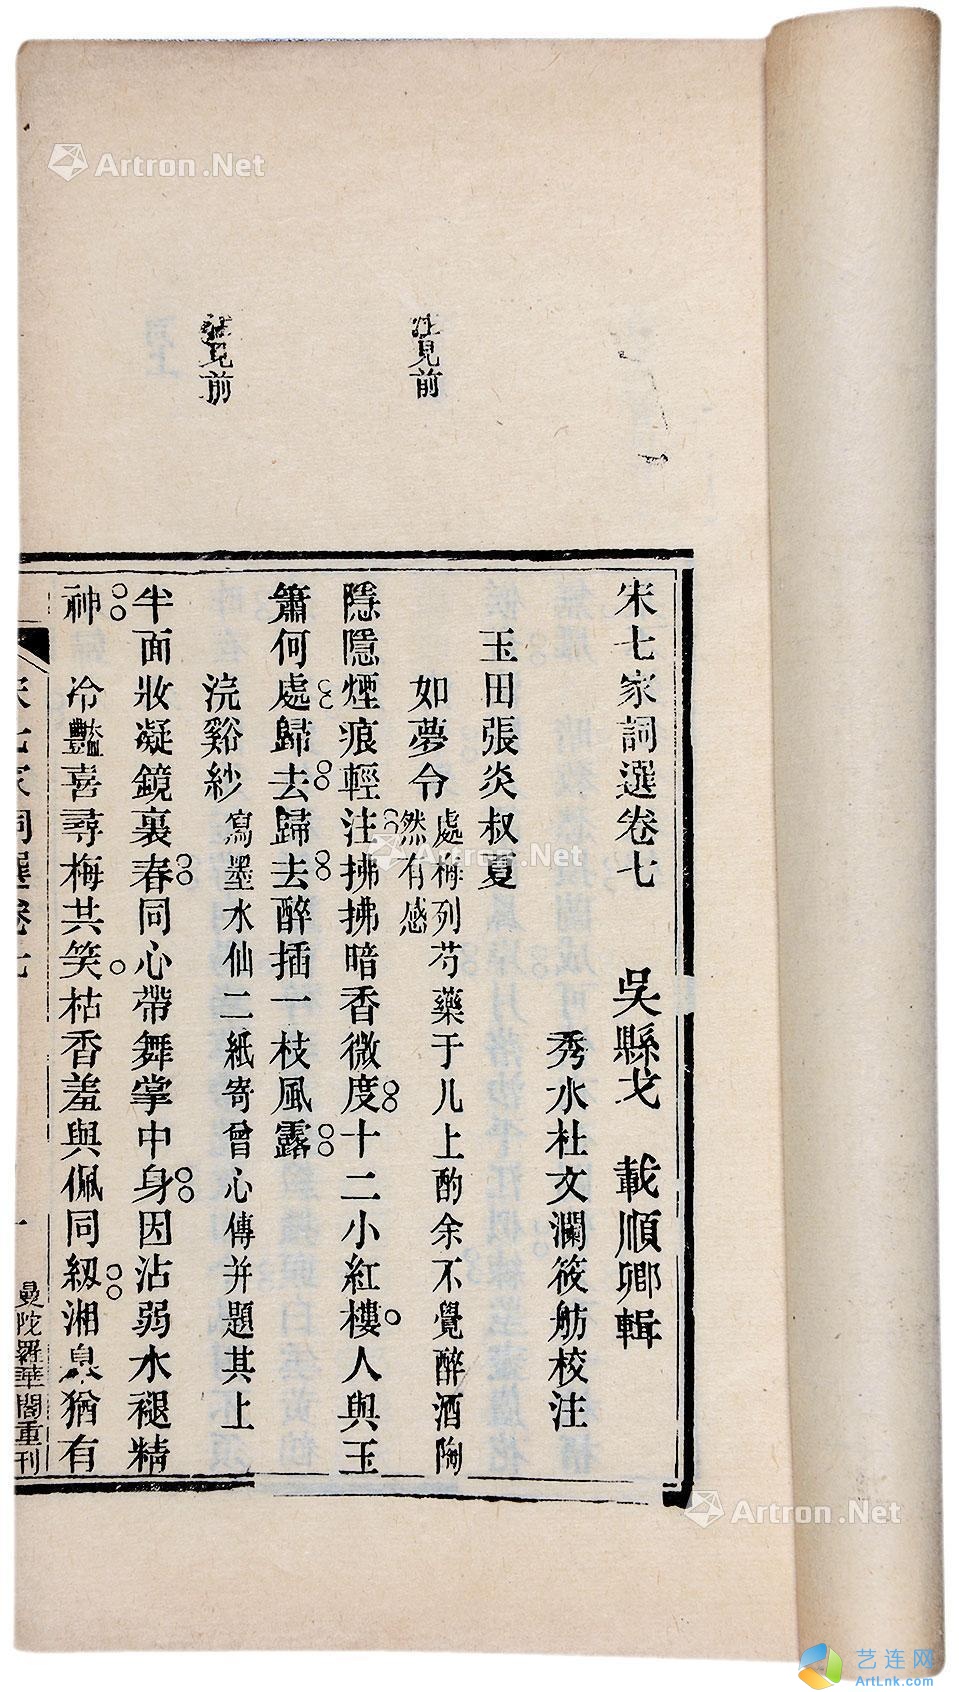 宋七家詞選卷七 吳縣戈 載順卿輯
秀水杜文瀾筱舫校注
玉田張炎叔夏
如夢令 處梅列芍藥于几上酌余不覺醉酒陶
然有感
隱隱煙痕輕注拂拂暗香微度十二小紅樓人與玉
簫何處歸去歸去醉插一枝風露
浣谿紗 寫墨水仙二紙寄曾心傳并題其上
半面妝凝鏡裏春同心帶舞掌中身因沾弱水褪精
神 冷豔喜尋梅共笑枯香羞與佩同紉湘皋猶有
註見前
註見前
宋七家詞選卷七
一
曼陀羅華閣重刊
Artron.Net
Artron.Net
Artron.Net
艺连网
ArtLnk.com